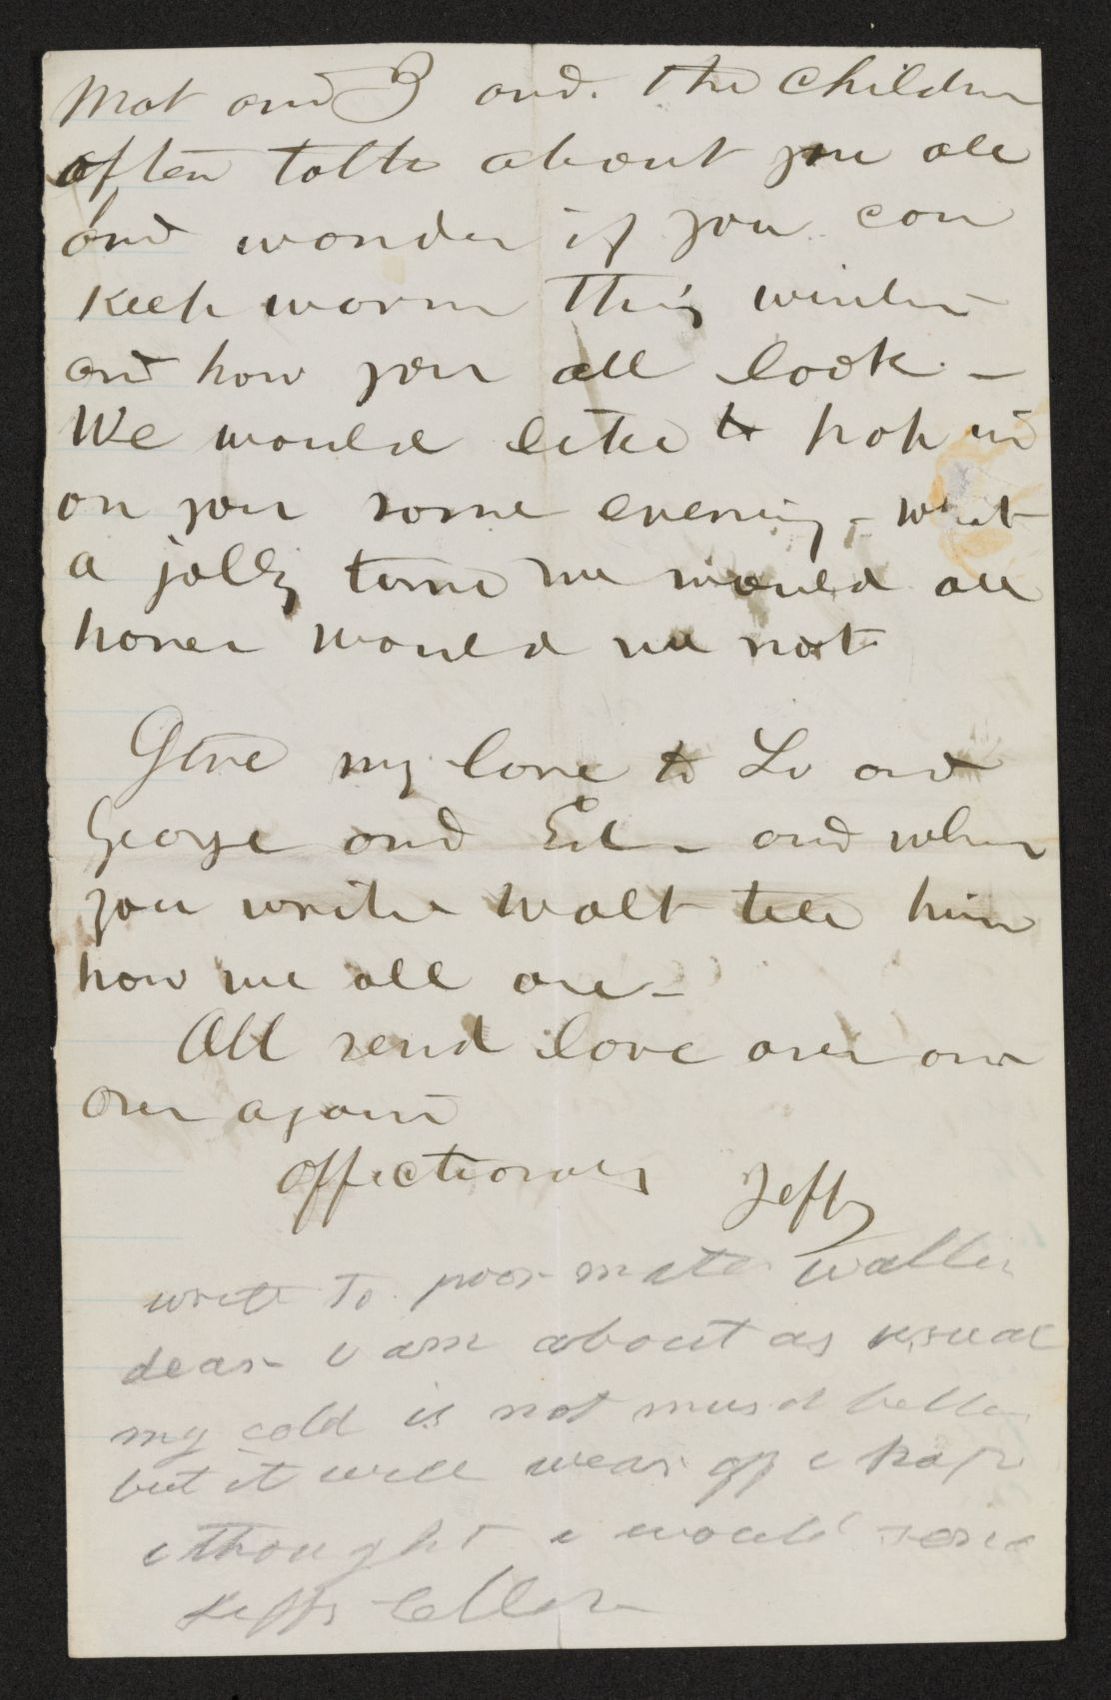 Mat and I and. the children
often talk about you all
and wonder if you can
keep warm this winter
and how you all look –
We would like to pop in
on you some evening – what
a jolly time we would all
have would we not
Give my love to Lo and
George and Ed – and when
you write Walt tell him
how we all are –
All send love over and
over again
affectionately Jeff
write to poor mat walter
dear i am about as usual
my cold is not much better
but it will wear off i hope
i thought i would send
Jeffs letter